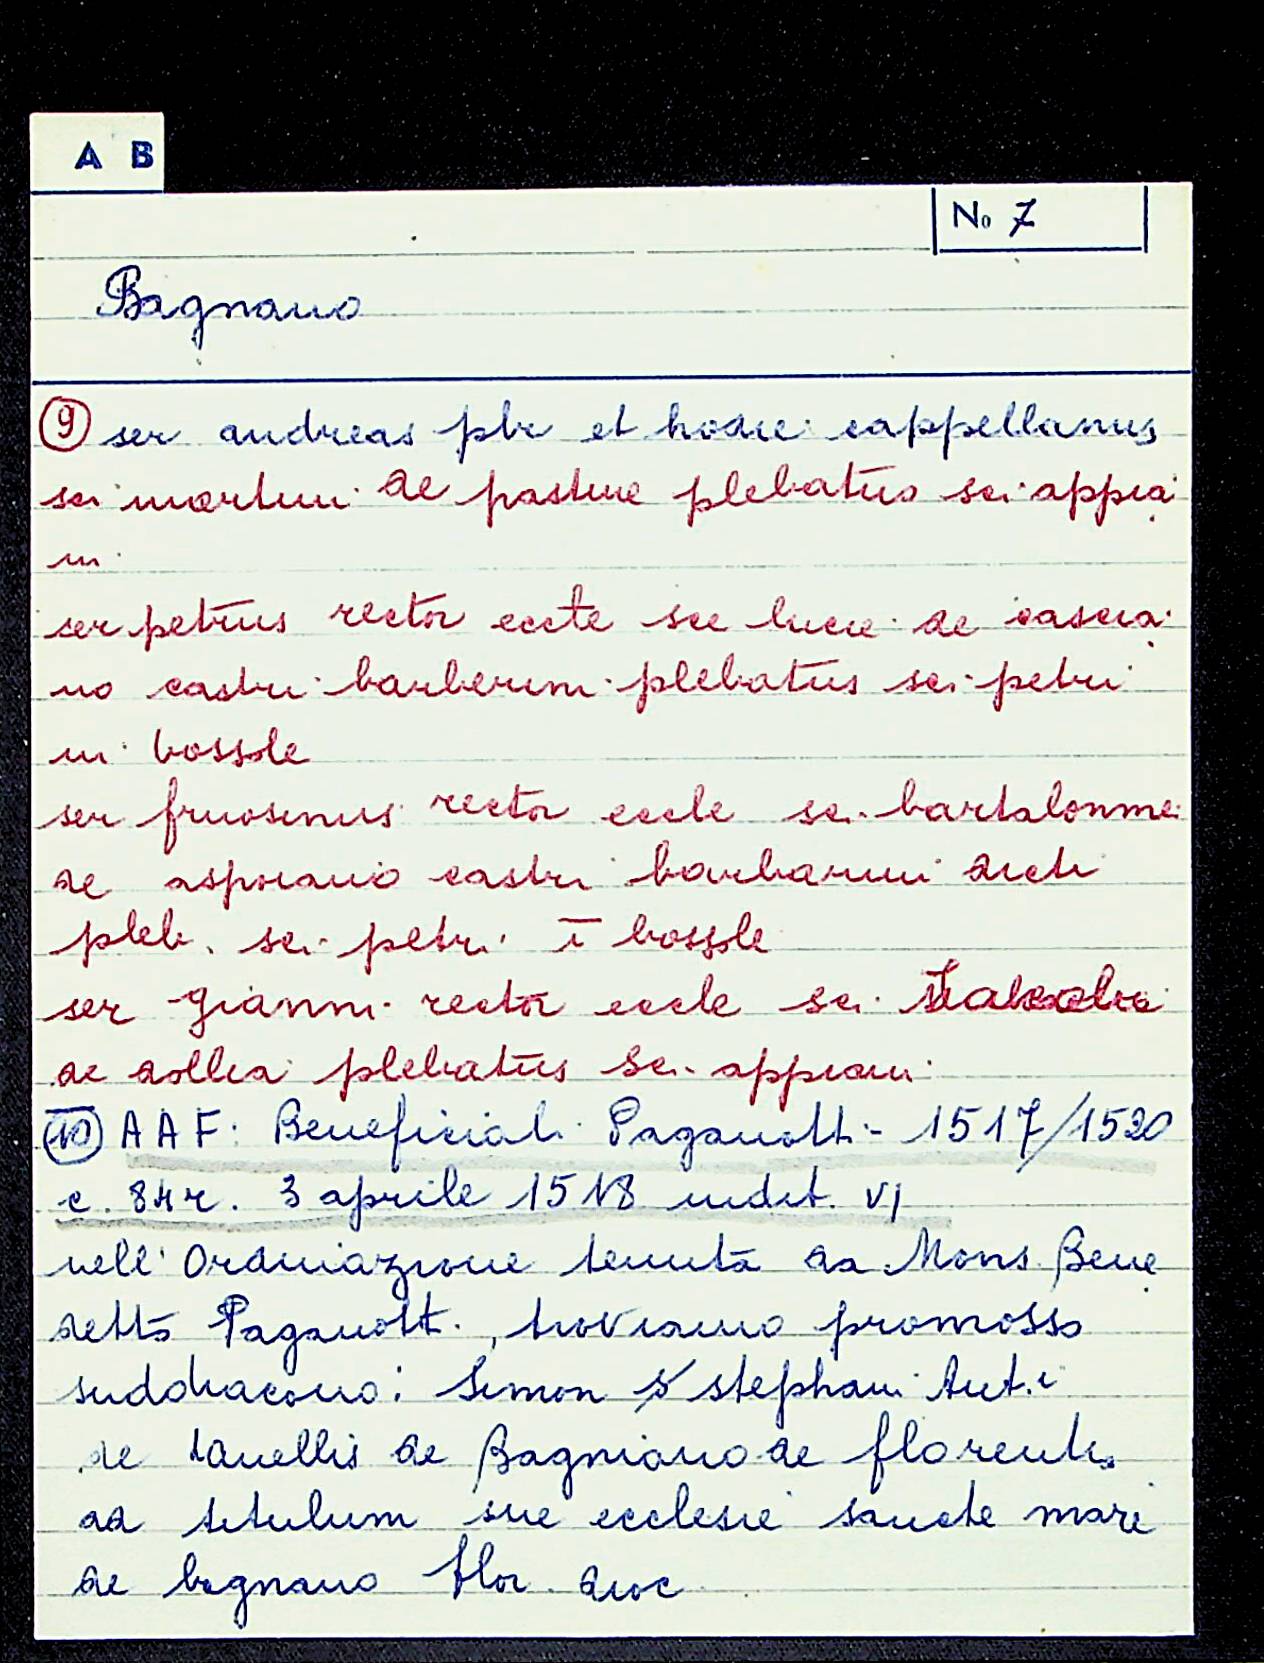 A B
No 7
Bagnano
9 ser andreas pbr et hodie cappellanus
sci martini de pastine plebatūs sci appia
ni
ser petrūs rectōr eccte sce lucie de cascia
no castri barberini plebatūs sci petri
in bossole
ser fruosinus rectōr eccle sci bartalomme
de asporano castri barbarini dicti
pleb. sci petri ī bossole
ser gianni rectōr eccle sci
de plebatūs sci appiani
10 AAF: Beneficiali Paganotti - 1517/1520
c. 84r. 3 aprile 1518 indit. VI
nell' Ordinazione tenuta da Mons. Bene
detto Paganotti, troviamo promosso
suddiacono: Simon s stephani Ant.i
de de Bagniano de florenti.
ad titulum sue ecclesie sancte marie
de bagnano flor. dioc